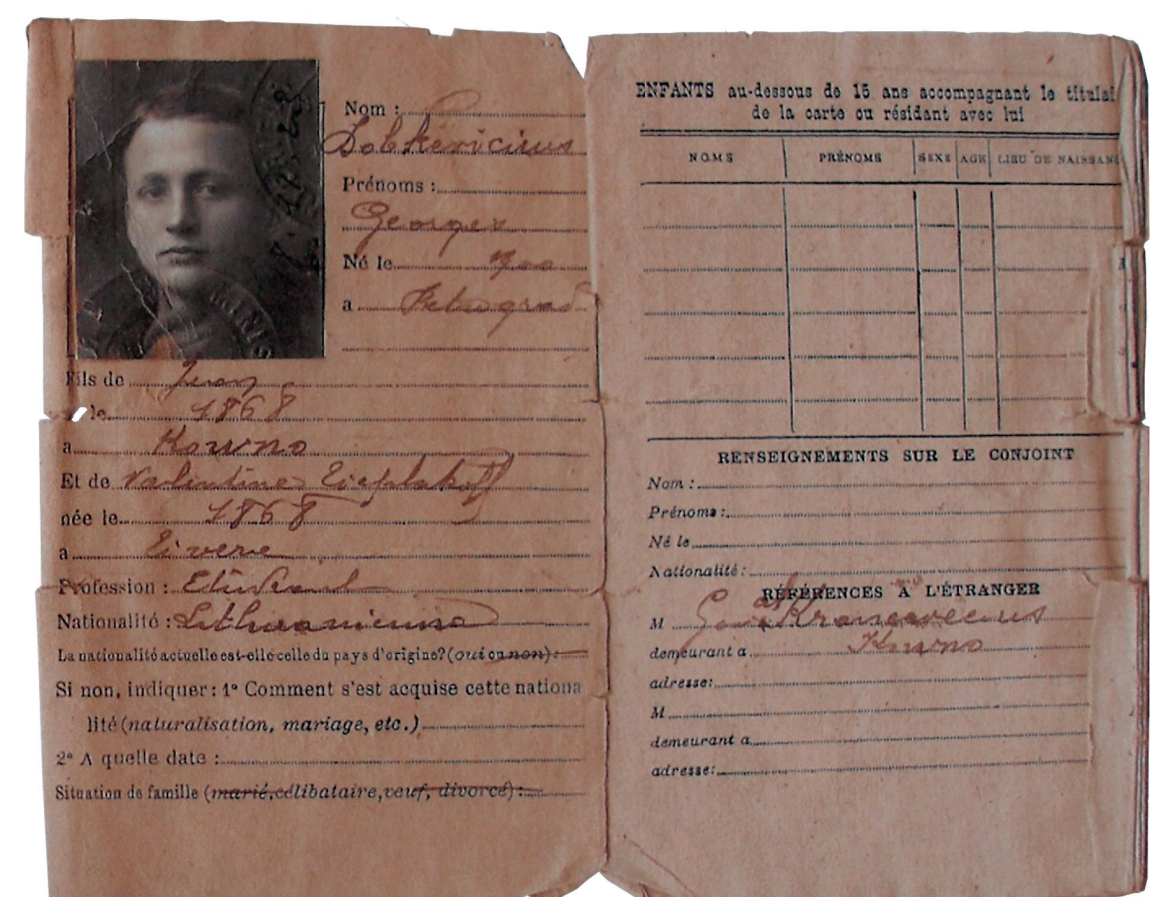 Nom :
Dobkevicius
Prénoms :
Georges
Né le 900
a Petrograd
Fils de Jean
le 1868
a Kowno
Et de Valentine
née le 1868
a
Profession : Etudiant
Nationalité : Lithuanienne
La nationalité actuelle est-elle celle du pays d'origine? (oui ou non) :
Si non, indiquer : 1° Comment s'est acquise cette nationa
lité (naturalisation, mariage, etc.)
2° A quelle date :
Situation de famille (marié, célibataire, veuf, divorcé) :
ENFANTS au-dessous de 15 ans accompagnant le titulai
de la carte ou résidant avec lui
NOMS PRÉNOMS SEXE AGE LIEU DE NAISSAN
RENSEIGNEMENTS SUR LE CONJOINT
Nom :
Prénoms :
Né le
Nationalité :
RÉFÉRENCES A L'ÉTRANGER
M
demeurant a Kowno
adresse:
M
demeurant a
adresse: